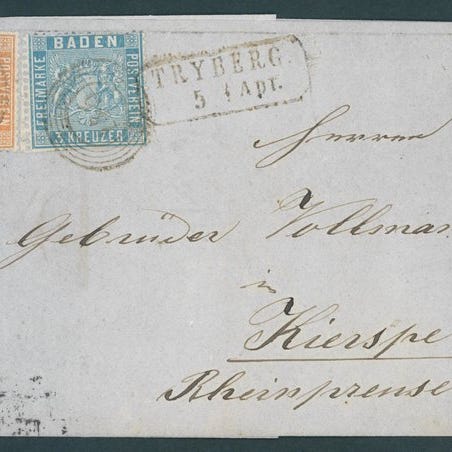 BADEN
FREIMARKE
POSTVEREIN
3 KREUZER.
TRYBERG.
5 Apr.
Herren
Gebrüder Vollman
in
Kierspe
Rheinpreusse